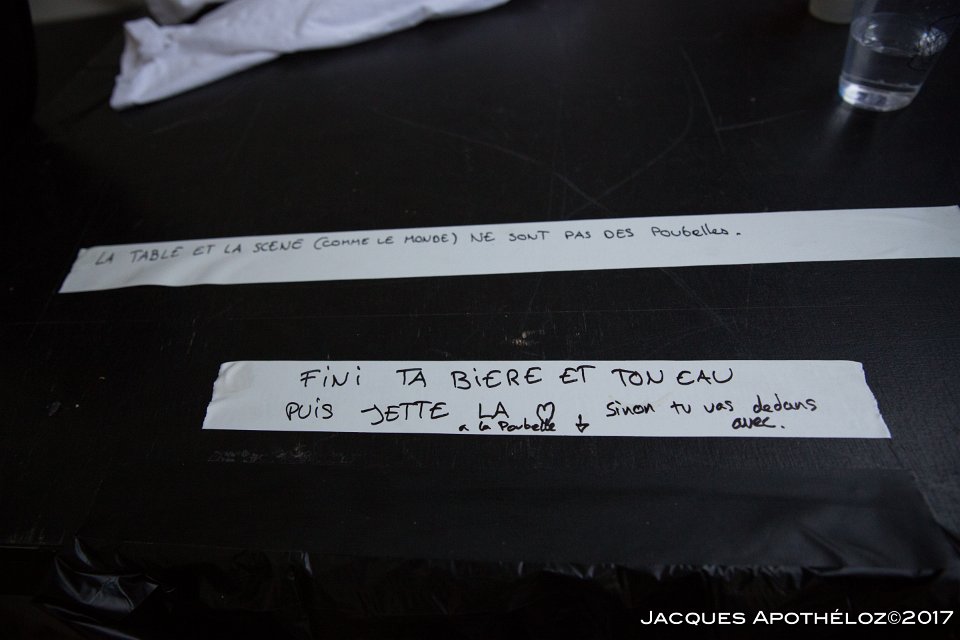 LA TABLE ET LA SCENE (COMME LE MONDE) NE SONT PAS DES Poubelles.
FINI TA BIERE ET TON EAU
PUIS JETTE LA ♡ sinon tu vas dedans
a la Poubelle ↓ avec.
JACQUES APOTHÉLOZ©2017